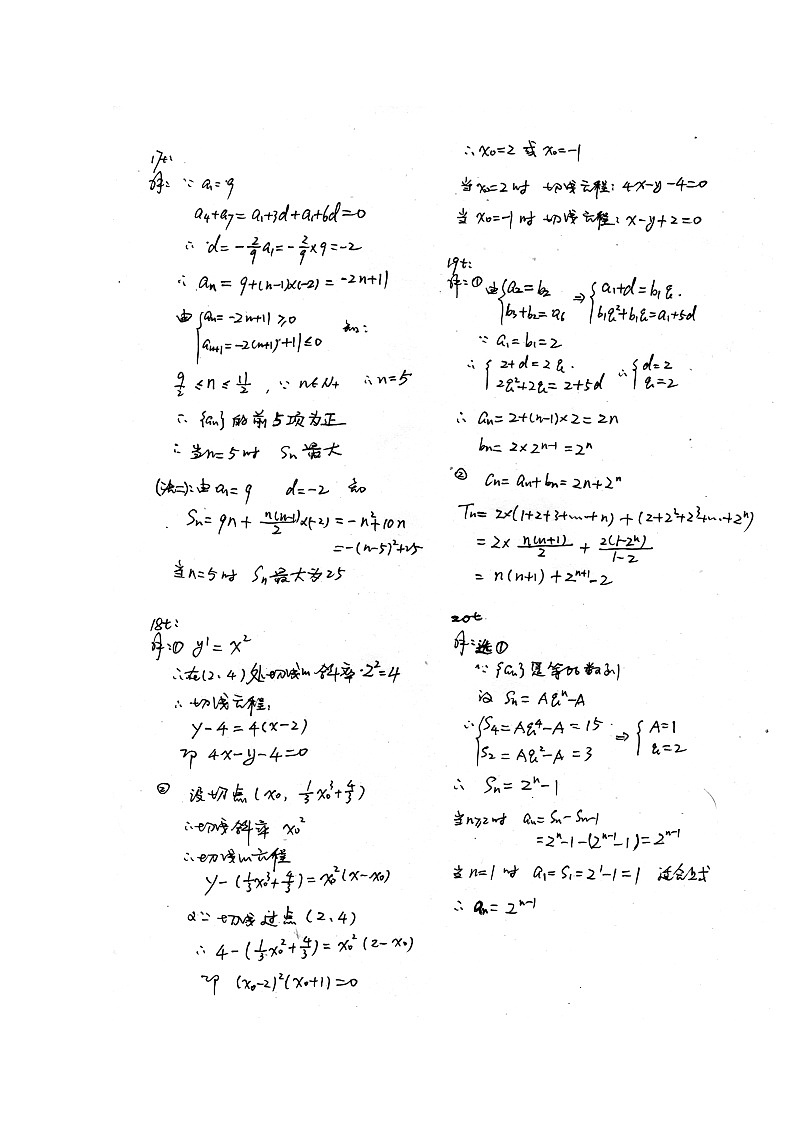 17t:
解: ∵ a₁=9
a₄+a₇=a₁+3d+a₁+6d=0
∴ d=-2/9a₁=-2/9×9=-2
∴ aₙ=9+(n-1)×(-2)=-2n+11
由{aₙ=-2n+11≥0
aₙ₊₁=-2(n+1)+11≤0 知:
9/2≤n≤11/2, ∵ n∈N₊ ∴n=5
∴ {aₙ}的前5项为正
∴ 当n=5时 Sₙ最大
(法二):由a₁=9 d=-2 知
Sₙ=9n+n(n-1)/2×(-2)=-n²+10n
=-(n-5)²+25
当n=5时 Sₙ最大为25
18t:
解:① y'=x²
∴在(2,4)处切线的斜率 2²=4
∴切线方程:
y-4=4(x-2)
即 4x-y-4=0
② 设切点(x₀, 1/3x₀³+4/3)
∴切线斜率 x₀²
∴切线的方程
y-(1/3x₀³+4/3)=x₀²(x-x₀)
又∵ 切线过点(2,4)
∴ 4-(1/3x₀²+4/3)=x₀²(2-x₀)
即 (x₀-2)²(x₀+1)=0
∴x₀=2 或 x₀=-1
当x₀=2时 切线方程: 4x-y-4=0
当x₀=-1时 切线方程: x-y+2=0
19t:
解:① 由{a₂=b₂ ⇒ {a₁+d=b₁q.
b₃+b₂=a₆ b₁q²+b₁q=a₁+5d
∵ a₁=b₁=2
∴ {2+d=2q. ∴ {d=2
2q²+2q=2+5d q=2
∴ aₙ=2+(n-1)×2=2n
bₙ=2×2ⁿ⁻¹=2ⁿ
② Cₙ=aₙ+bₙ=2n+2ⁿ
Tₙ=2×(1+2+3+…+n)+(2+2²+2³+…+2ⁿ)
=2×n(n+1)/2+2(1-2ⁿ)/1-2
=n(n+1)+2ⁿ⁺¹-2
20t
解:选①
∵ {aₙ}是等比数列
设 Sₙ=Aqⁿ-A
∴ {S₄=Aq⁴-A=15 ⇒ {A=1
S₂=Aq²-A=3 q=2
∴ Sₙ=2ⁿ-1
当n≥2时 aₙ=Sₙ-Sₙ₋₁
=2ⁿ-1-(2ⁿ⁻¹-1)=2ⁿ⁻¹
当n=1时 a₁=S₁=2¹-1=1 适合上式
∴ aₙ=2ⁿ⁻¹